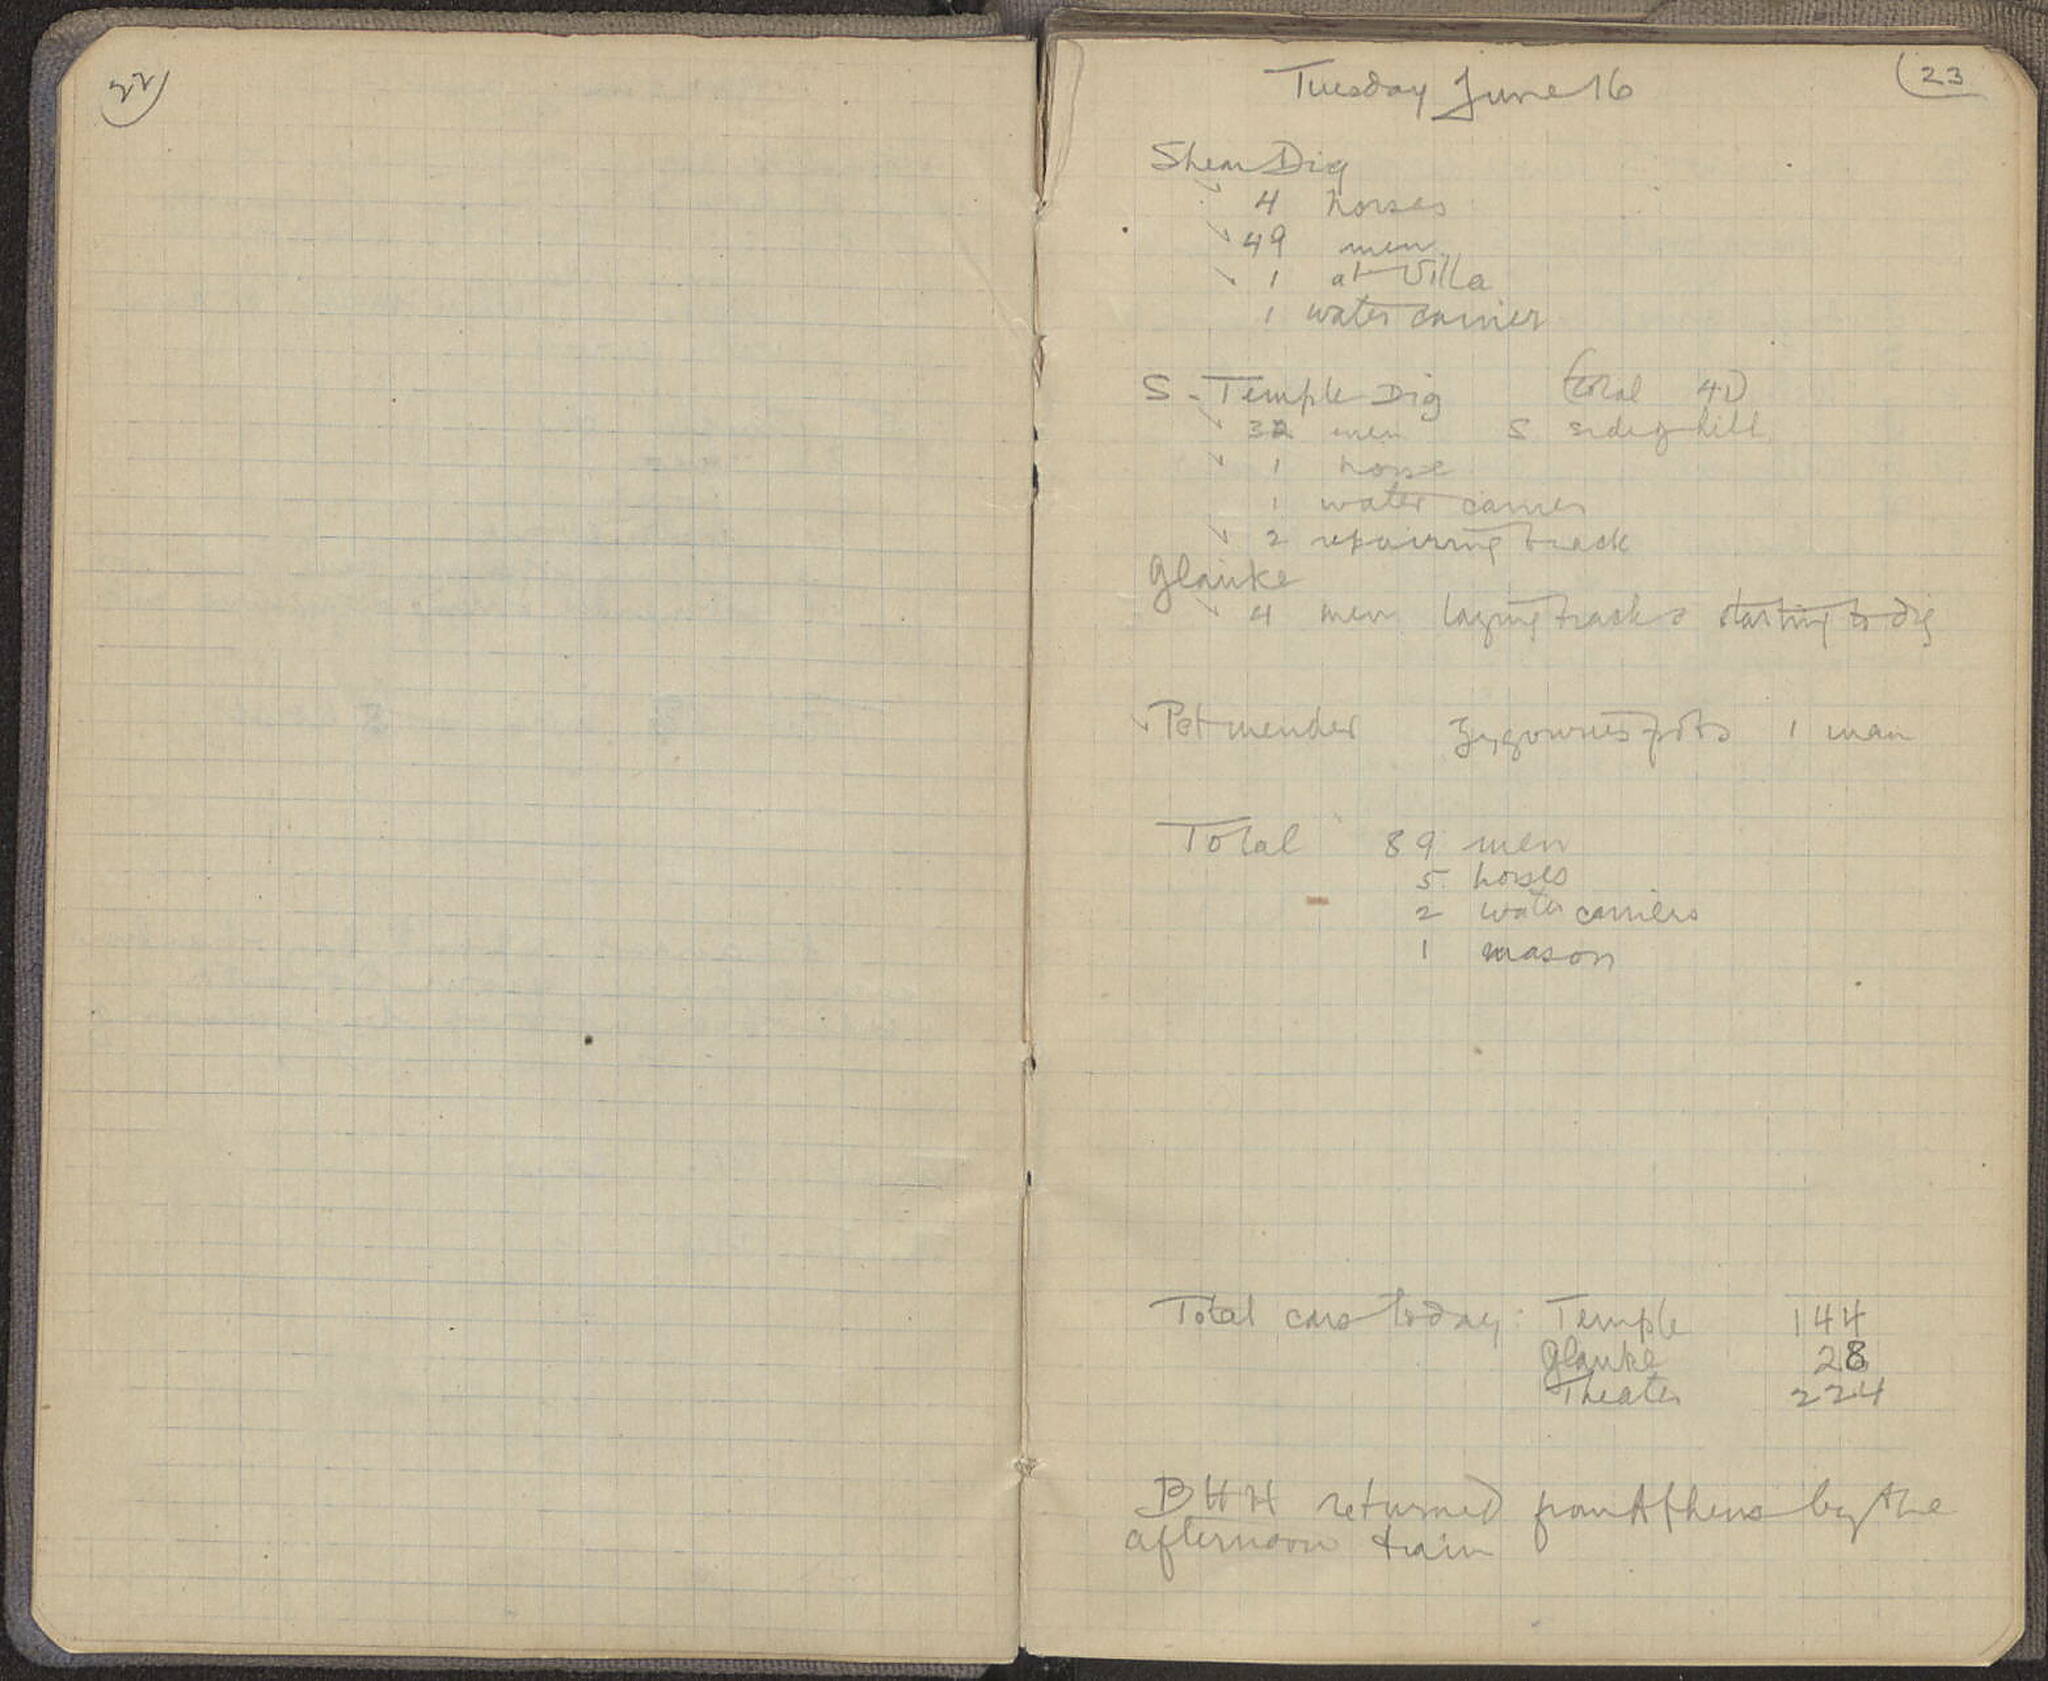 22
23
Tuesday June 16
Shear Dig
4 horses
49 men
1 at Villa
1 water carrier
S - Temple Dig (total 41)
32 men S side of hill
1 horse
1 water carrier
2 repairing track
Glauke
4 men laying track & starting to dig
Pot mender Zygouries pots 1 man
Total 89 men
5 horses
2 water carriers
1 mason
Total cars today: Temple 144
Glauke 28
Theater 224
BHH returned from Athens by the
afternoon train